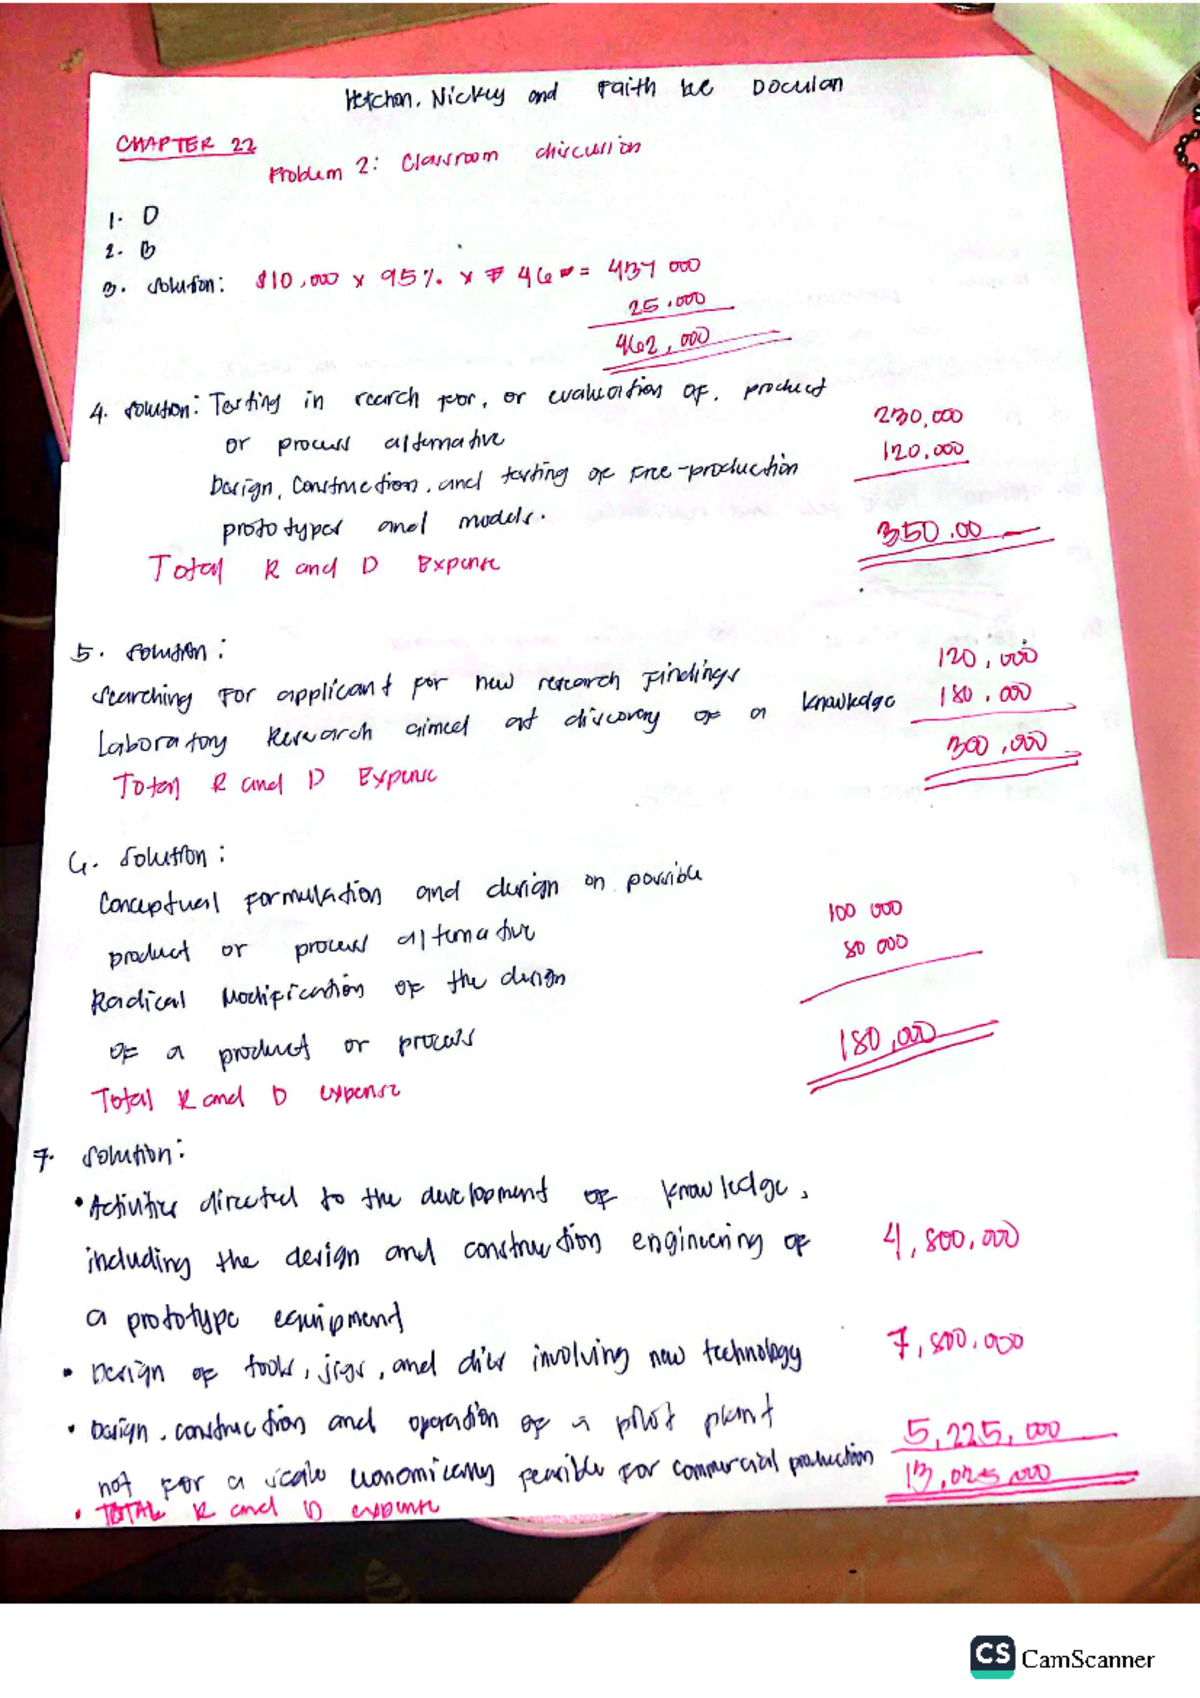 Hetchon, Nickey and Faith be Doculan
CHAPTER 22
Problem 2: Classroom discussion
1. D
2. B
3. Solution: $10,000 x 95% x ₱ 46 = 437 000
25.000
462,000
4. Solution: Testing in search for, or evaluation of, product
or process alternative 230,000
Design, Construction, and testing of Free-production 120.000
prototypes and models. 350.00
Total R and D Expense
5. Solution:
Searching For applicant for new research Findings 120,000
Laboratory Research aimed at discovery of a knowledge 180.000
Total R and D Expense 300,000
6. Solution:
Conceptual Formulation and design on possible
product or process alternative 100 000
Radical Modification of the design 80 000
of a product or process 180,000
Total R and D expense
7. Solution:
• Activities directed to the development of knowledge,
including the design and construction engineering of 4,800,000
a prototype equipment
• Design of tools, jigs, and dies involving new technology 7,800,000
• Design, construction and operation of a pilot plant 5,225,000
not for a scale economically feasible for commercial production 13,025,000
• TOTAL R and D expense
CS CamScanner